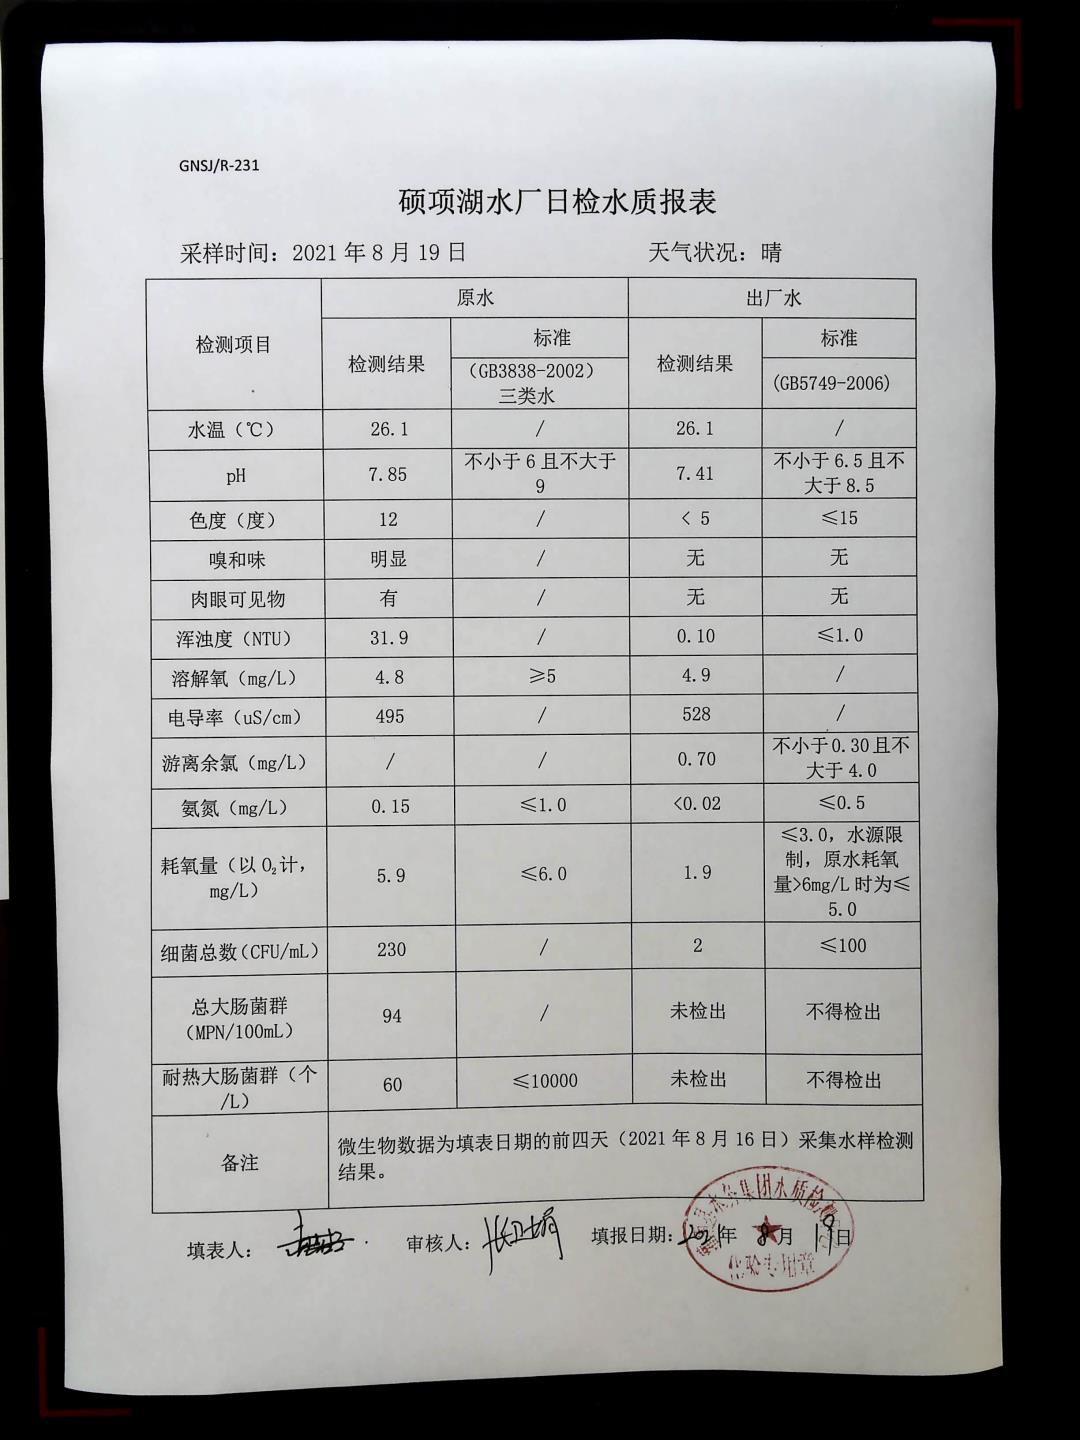 GNSJ/R-231
硕项湖水厂日检水质报表
采样时间：2021 年 8 月 19 日 天气状况：晴
检测项目 原水 出厂水
检测结果 标准 检测结果 标准
（GB3838-2002）
三类水
(GB5749-2006)
水温（℃） 26.1 / 26.1 /
pH 7.85 不小于 6 且不大于 9 7.41 不小于 6.5 且不大于 8.5
色度（度） 12 / < 5 ≤15
嗅和味 明显 / 无 无
肉眼可见物 有 / 无 无
浑浊度（NTU） 31.9 / 0.10 ≤1.0
溶解氧（mg/L） 4.8 ≥5 4.9 /
电导率（uS/cm） 495 / 528 /
游离余氯（mg/L） / / 0.70 不小于 0.30 且不大于 4.0
氨氮（mg/L） 0.15 ≤1.0 <0.02 ≤0.5
耗氧量（以 O₂计，mg/L） 5.9 ≤6.0 1.9 ≤3.0，水源限制，原水耗氧量>6mg/L 时为≤5.0
细菌总数(CFU/mL) 230 / 2 ≤100
总大肠菌群（MPN/100mL） 94 / 未检出 不得检出
耐热大肠菌群（个/L） 60 ≤10000 未检出 不得检出
备注 微生物数据为填表日期的前四天（2021 年 8 月 16 日）采集水样检测
结果。
填表人： 审核人： 填报日期：2021年 8月 19日
水务集团水质检
化验专用章